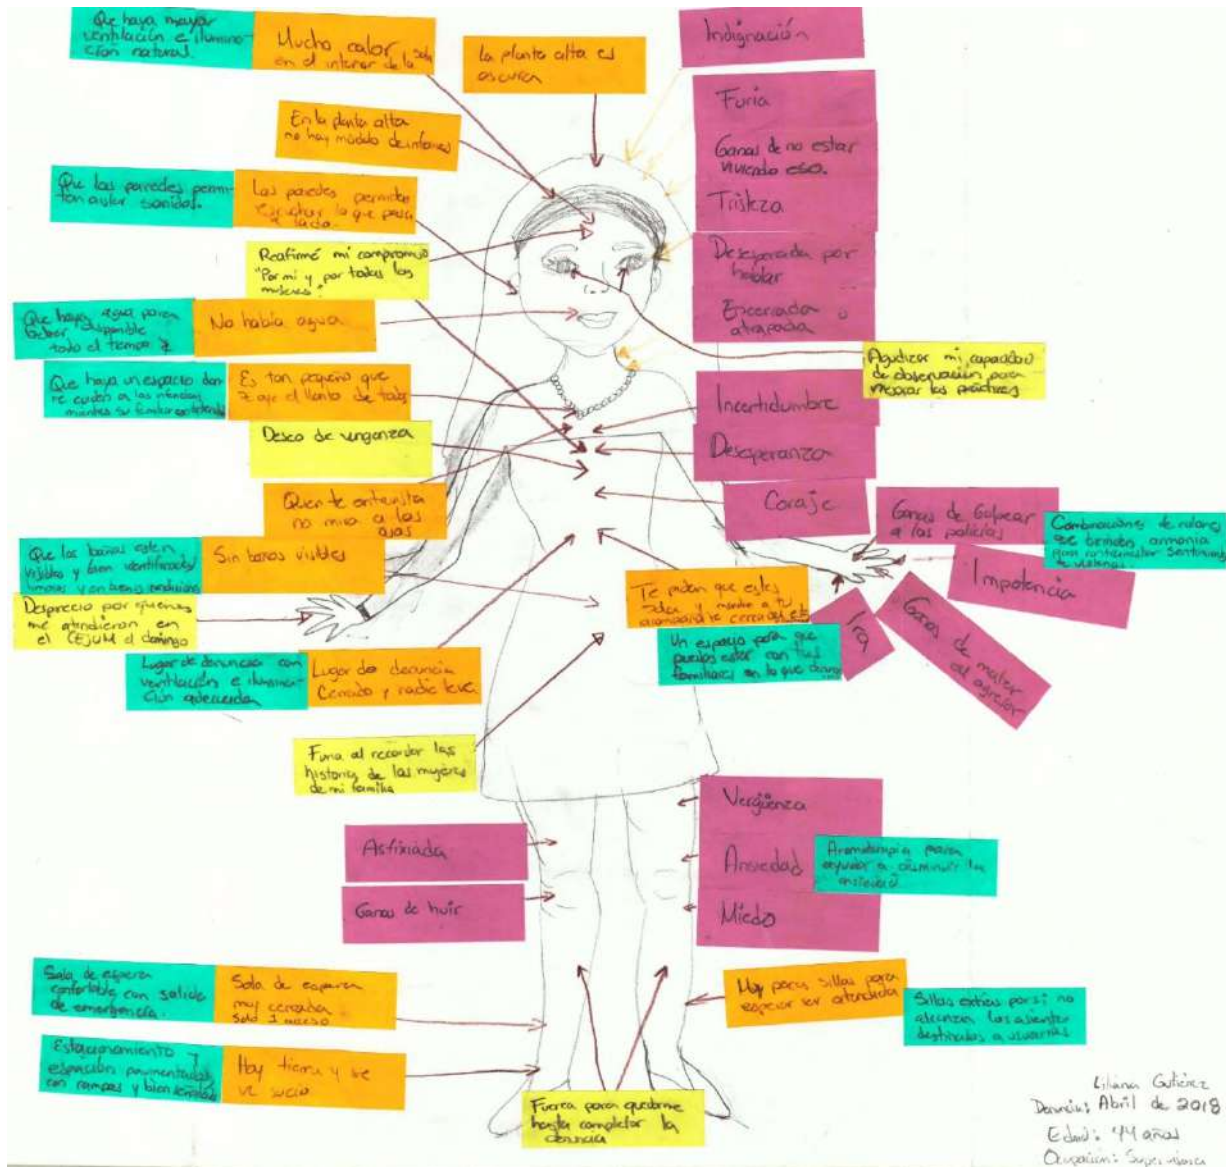 Que haya mayor
ventilación e ilumina-
ción natural.
Mucho calor
en el interior de la sala
La planta alta es
oscura
Indignación
En la planta alta
no hay módulo de informes
Furia
Ganas de no estar
viviendo eso.
Tristeza
Que las paredes permi-
tan aislar sonidos.
Las paredes permiten
escuchar lo que pasa
Reafirmé mi compromiso
"Por mi y por todas las
mujeres"
Desesperada por
hablar
Encerrada o
atrapada
Que haya agua para
beber disponible
todo el tiempo
No había agua
Agudizar mi capacidad
de observación para
mejorar las prácticas
Que haya un espacio don-
Es tan pequeño que
el llanto de todas
Incertidumbre
Deseo de venganza
Desesperanza
Quien te entrevista
no mira a los
ojos
Coraje
Ganas de Golpear
a los policías
Combinaciones de colores
que brinden armonía
Que los baños esten
visibles y bien identificados,
limpios y en buenas condiciones
Sin baños visibles
Impotencia
Desprecio por quienes
me atendieron en
el CEJUM el domingo
Te piden que estes
sola y
Ira
Ganas de matar
al agresor
Un espacio para que
puedas estar con tus
familiares en lo que
Lugar de denuncia con
ventilación e ilumina-
ción adecuada
Lugar de denuncia
Cerrado y nadie
Furia al recordar las
historias de las mujeres
de mi familia
Vergüenza
Asfixiada
Ansiedad
Aromaterapia para
ayudar a disminuir la
ansiedad
Ganas de huir
Miedo
Sala de espera
confortable con salida
de emergencia.
Sala de espera
muy cerrada
solo 1 acceso
Hay pocas sillas para
esperar ser atendida
Sillas extras por si no
alcanzan los asientos
destinados a usuarias
Estacionamiento y
espacios pavimentados
con rampas y bien señalados
Hay tierra y se
ve sucio
Fuerza para quedarme
hasta completar la
denuncia
Liliana Gutiérrez
Denuncia: Abril de 2018
Edad: 44 años
Ocupación: Supervisora